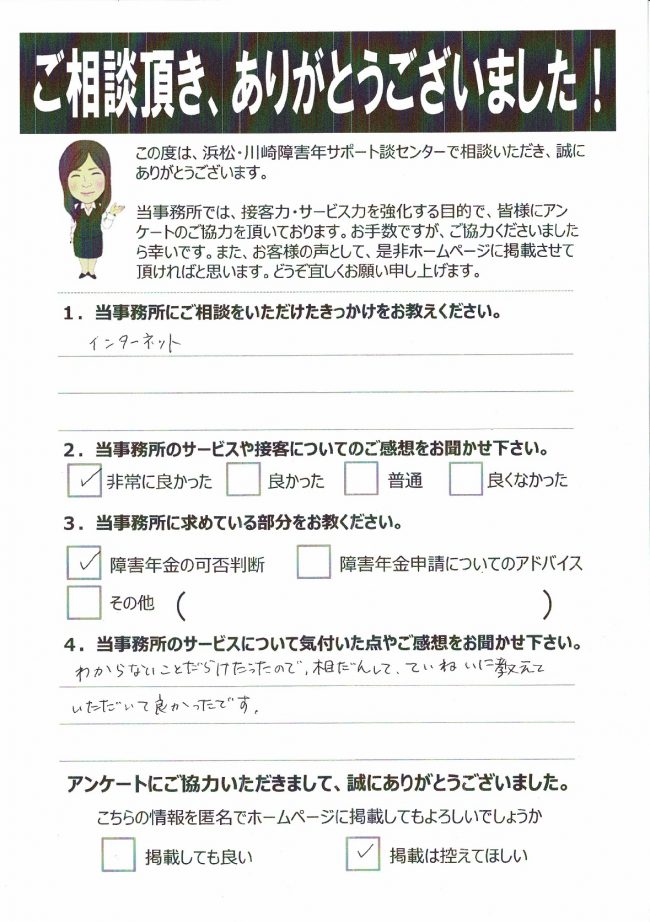 ご相談頂き、ありがとうございました！
この度は、浜松・川崎障害年サポート談センターで相談いただき、誠に
ありがとうございます。
当事務所では、接客力・サービス力を強化する目的で、皆様にアン
ケートのご協力を頂いております。お手数ですが、ご協力くださいました
ら幸いです。また、お客様の声として、是非ホームページに掲載させて
頂ければと思います。どうぞ宜しくお願い申し上げます。
1．当事務所にご相談をいただけたきっかけをお教えください。
インターネット
2．当事務所のサービスや接客についてのご感想をお聞かせ下さい。
✓ 非常に良かった 良かった 普通 良くなかった
3．当事務所に求めている部分をお教ください。
✓ 障害年金の可否判断 障害年金申請についてのアドバイス
その他 （ ）
4．当事務所のサービスについて気付いた点やご感想をお聞かせ下さい。
わからないことだらけだったので、相だんして、ていねいに教えて
いただいて良かったです。
アンケートにご協力いただきまして、誠にありがとうございました。
こちらの情報を匿名でホームページに掲載してもよろしいでしょうか
掲載しても良い ✓ 掲載は控えてほしい